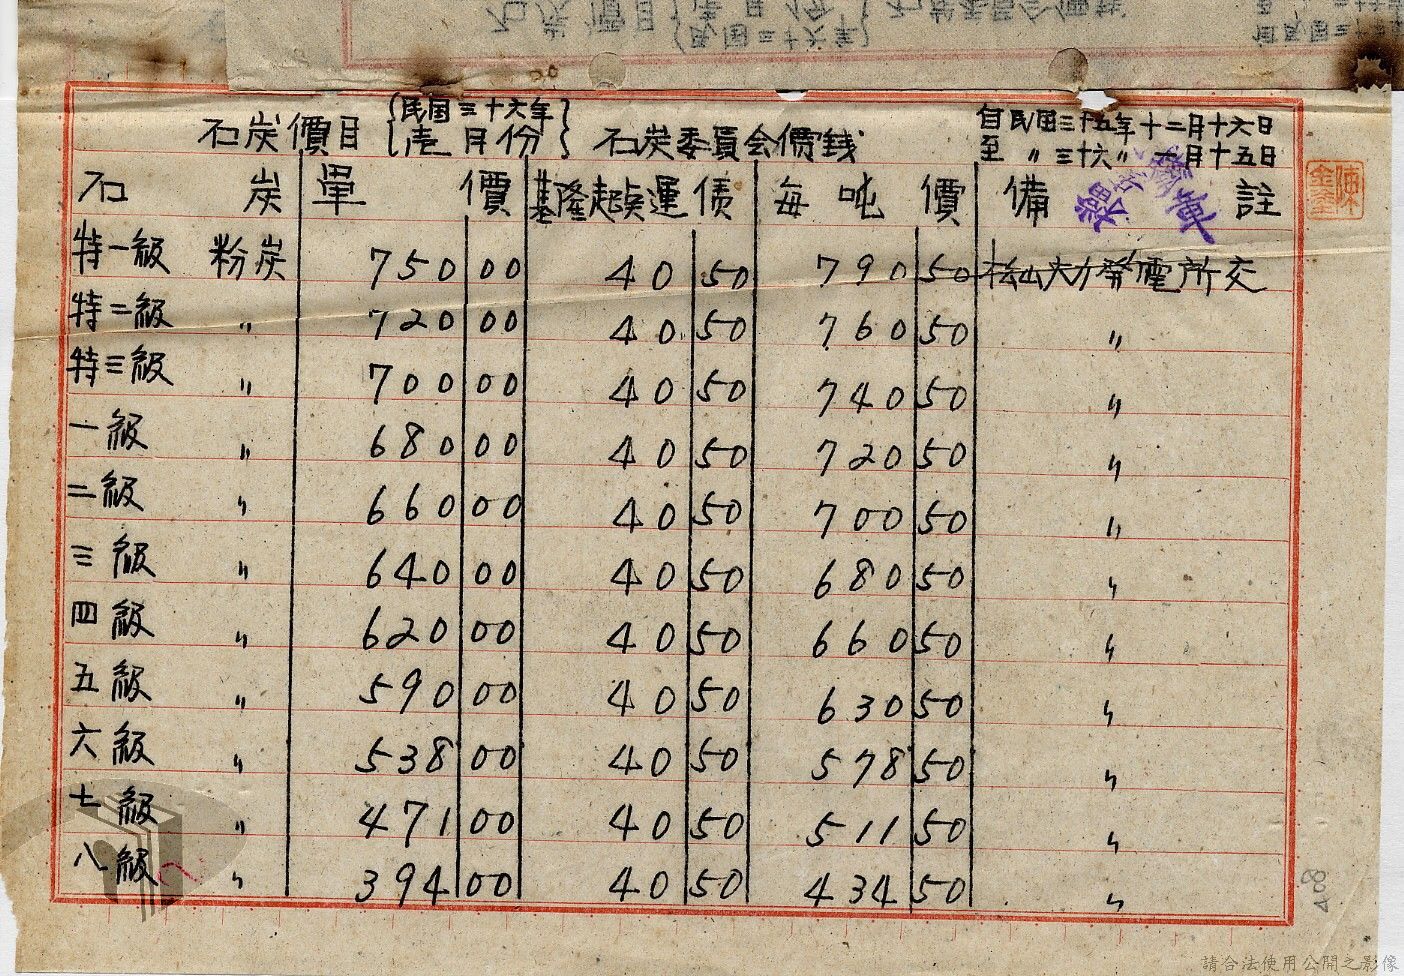 石炭價目{民国三十六年 壱月份} 石炭委員会價錢 自民国三十五年十二月十六日
至 〃 三十六 〃 一月十五日
石炭 單價 基隆起点運债 每吨價 備註
特一級 粉炭 750 00 40 50 790 50 松山火力發電所交
特二級 〃 720 00 40 50 760 50 〃
特三級 〃 700 00 40 50 740 50 〃
一級 〃 680 00 40 50 720 50 〃
二級 〃 660 00 40 50 700 50 〃
三級 〃 640 00 40 50 680 50 〃
四級 〃 620 00 40 50 660 50 〃
五級 〃 590 00 40 50 630 50 〃
六級 〃 538 00 40 50 578 50 〃
七級 〃 471 00 40 50 511 50 〃
八級 〃 394 00 40 50 434 50 〃
408
請合法使用公開之影像